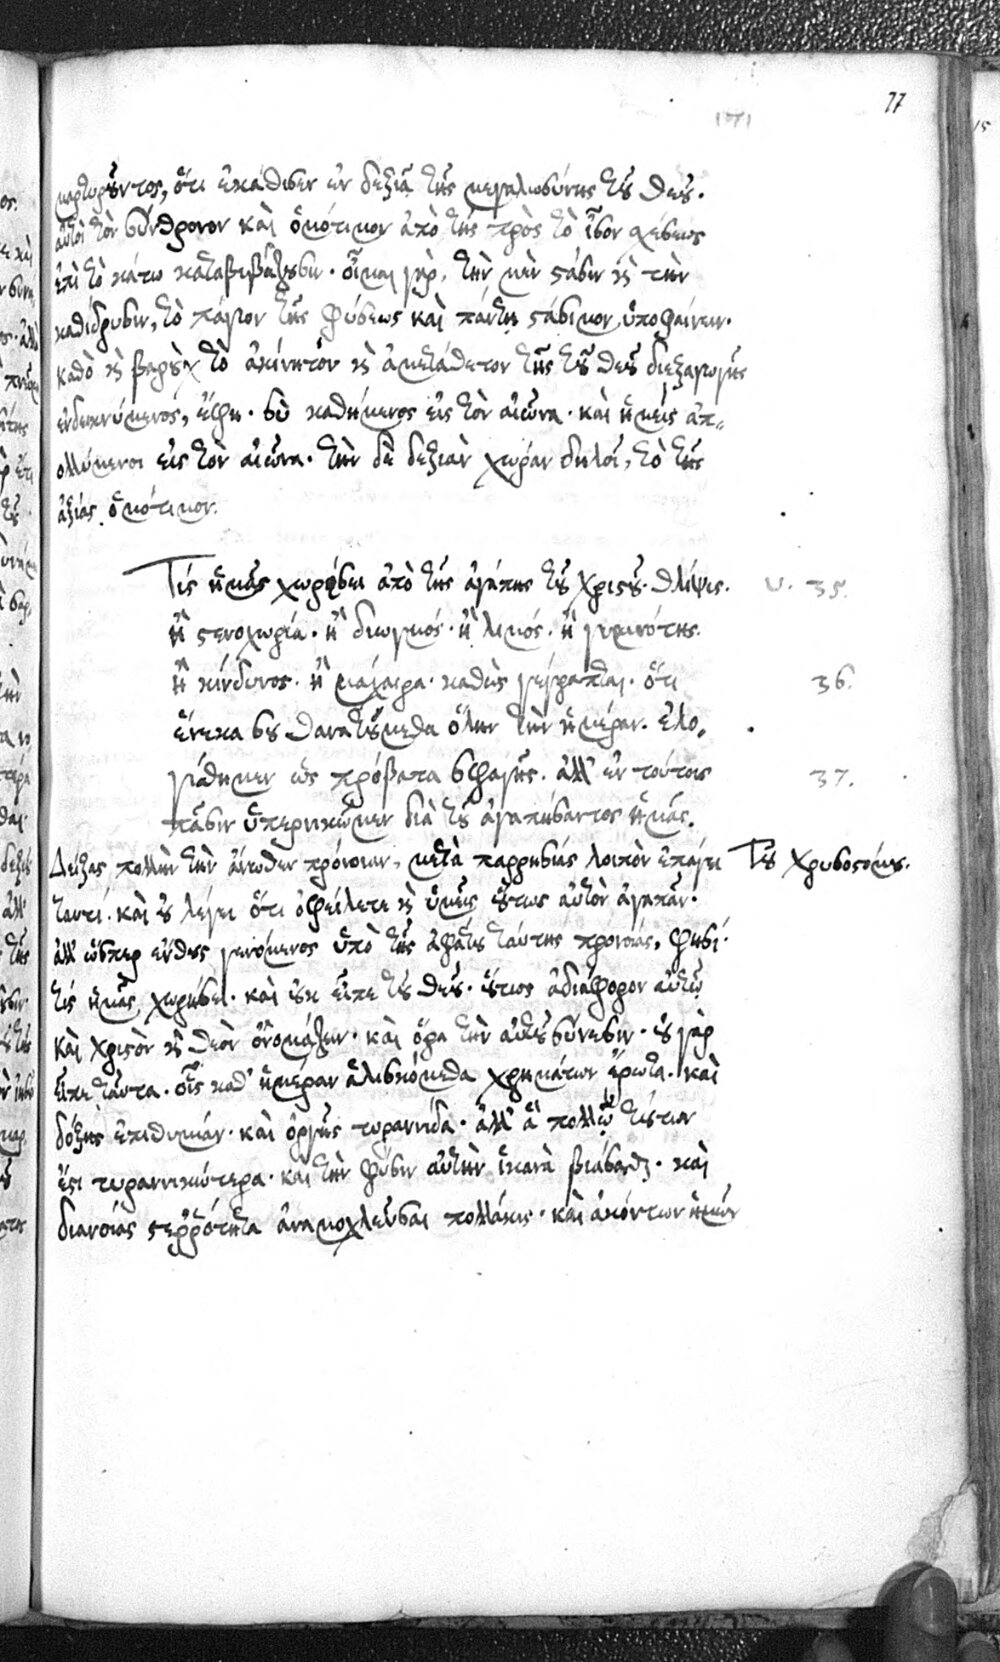 77
μαρτυροῦντος, ὅτι ἐκάθισεν ἐν δεξιᾷ τῆς μεγαλωσύνης τοῦ θεοῦ.
αὐτοὶ τὸν σύνθρονον καὶ ὁμότιμον ἀπὸ τῆς πρὸς τὸ ἴσον σχέσεως
ἐπὶ τὸ κάτω καταβιβάζουσιν. οἶμαι γὰρ, τὴν μὲν στάσιν καὶ τὴν
καθίδρυσιν, τὸ πάγιον τῆς φύσεως καὶ πάντῃ στάσιμον ὑποφαίνειν.
καθὸ καὶ βαροὺχ τὸ ἀκίνητον καὶ ἀμετάθετον τῆς τοῦ θεοῦ διεξαγωγῆς
ἐνδεικνύμενος, ἔφη. σὺ καθήμενος εἰς τὸν αἰῶνα. καὶ ἡμεῖς ἀπ-
ολλύμενοι εἰς τὸν αἰῶνα. τὴν δὲ δεξιὰν χώραν δηλοῖ, τὸ τῆς
ἀξίας ὁμότιμον.
Τίς ἡμᾶς χωρίσει ἀπὸ τῆς ἀγάπης τοῦ χριστοῦ. θλίψις. υ. 35.
ἢ στενοχωρία. ἢ διωγμός. ἢ λιμός. ἢ γυμνότης.
ἢ κίνδυνος. ἢ μάχαιρα. καθὼς γέγραπται. ὅτι 36.
ἕνεκα σοῦ θανατούμεθα ὅλην τὴν ἡμέραν. ἐλο-
γίσθημεν ὡς πρόβατα σφαγῆς. ἀλλ' ἐν τούτοις 37.
πᾶσιν ὑπερνικῶμεν διὰ τοῦ ἀγαπήσαντος ἡμᾶς.
Δείξας πολλὴν τὴν ἄνωθεν πρόνοιαν, μετὰ παρρησίας λοιπὸν ἐπάγει Τοῦ Χρυσοστόμου.
ταυτί. καὶ οὐ λέγει ὅτι ὀφείλετε καὶ ὑμεῖς οὕτως αὐτὸν ἀγαπᾶν.
ἀλλ' ὥσπερ ἔνθους γενόμενος ὑπὸ τῆς ἀφάτου ταύτης προνοίας, φησί.
τίς ἡμᾶς χωρίσει. καὶ οὐκ εἶπε τοῦ θεοῦ. οὕτως ἀδιάφορον αὐτῷ
καὶ χριστὸν καὶ θεὸν ὀνομάζειν. καὶ ὅρα τὴν αὐτοῦ σύνεσιν. οὐ γὰρ
εἶπε ταῦτα. οἷς καθ' ἡμέραν ἁλισκόμεθα χρημάτων ἔρωτα. καὶ
δόξης ἐπιθυμίαν. καὶ ὀργῆς τυραννίδα. ἀλλ' ἃ πολλῷ τούτων
ἐστι τυραννικώτερα. καὶ τὴν φύσιν αὐτὴν ἱκανὰ βιάσασθαι. καὶ
διανοίας στερρότητα ἀναμοχλεῦσαι πολλάκις. καὶ ἀκόντων ἡμῶν